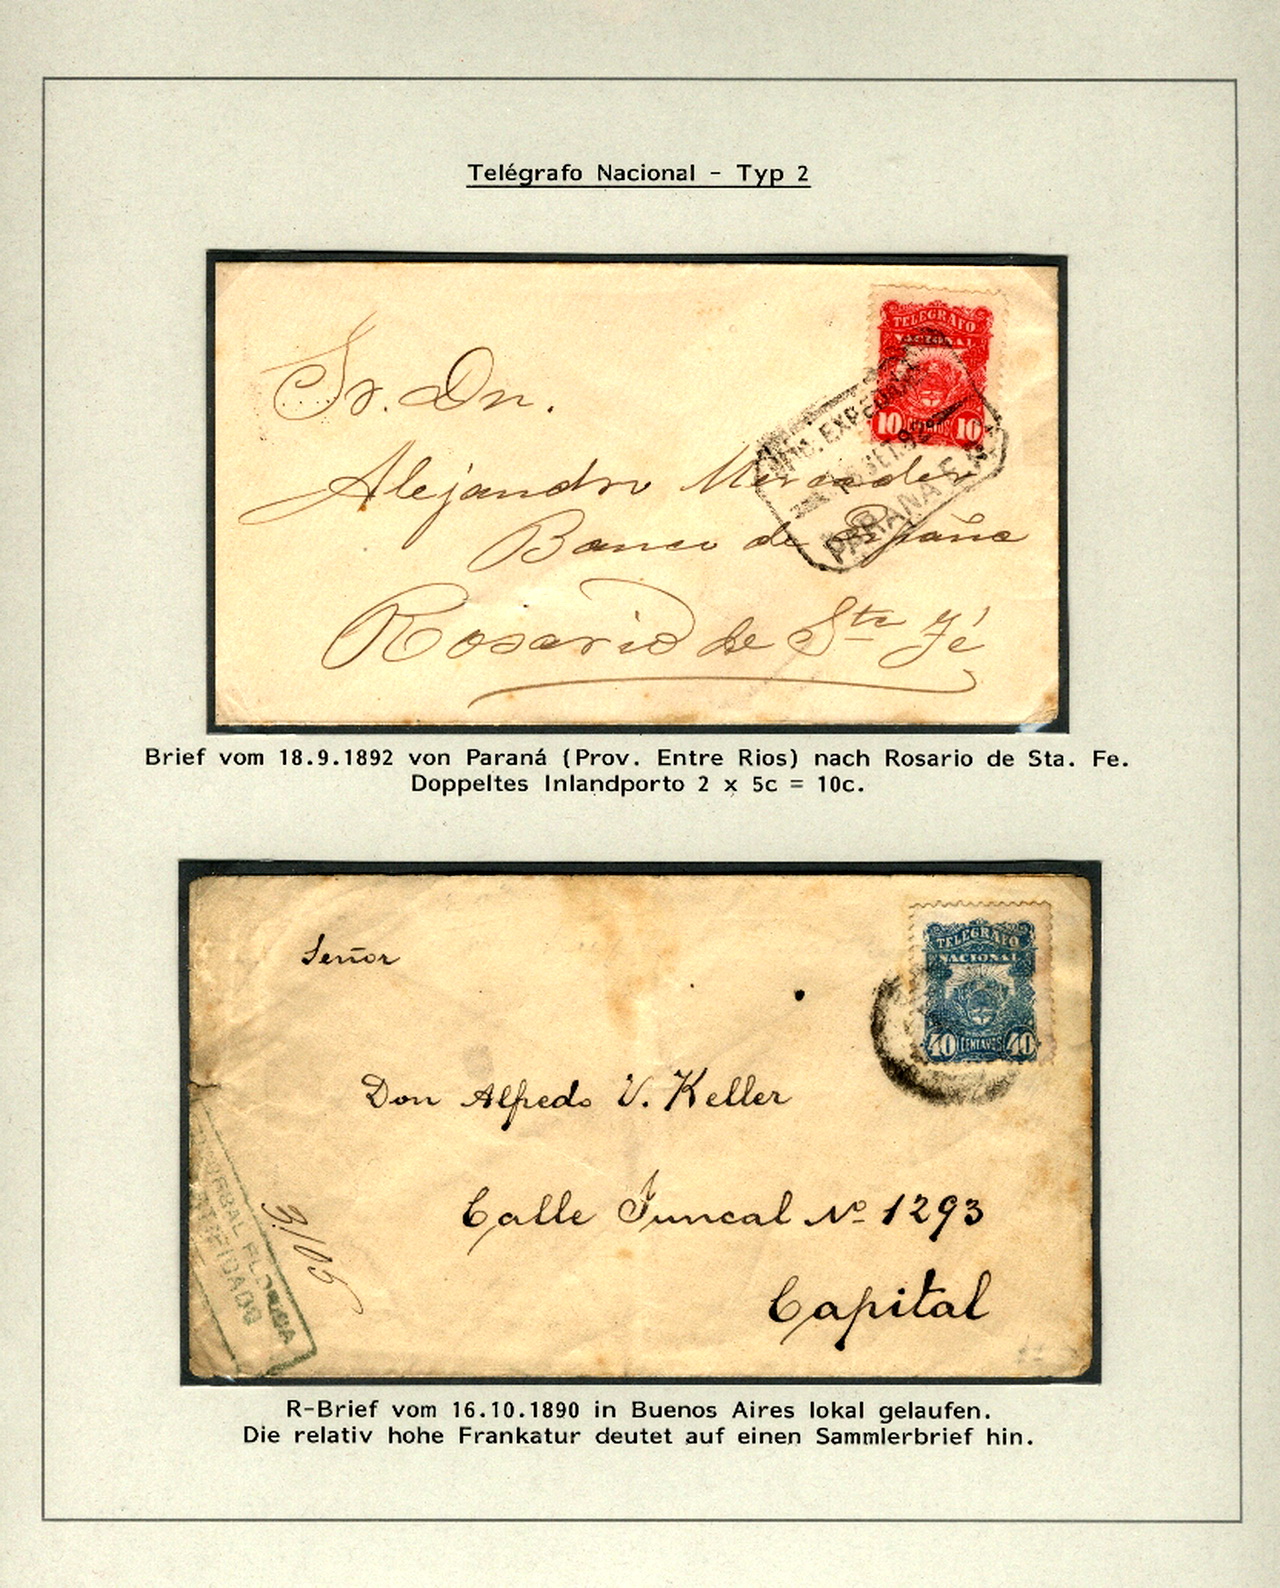 Telégrafo Nacional - Typ 2
TELEGRAFO
NACIONAL
10 CENTAVOS 10
Sr. Dn.
Alejandro Mercader
Banco de España
Rosario de Sta Fé
OFIC. EXPEDI
SET. 92
PARANA E. R.
Brief vom 18.9.1892 von Paraná (Prov. Entre Rios) nach Rosario de Sta. Fe.
Doppeltes Inlandporto 2 x 5c = 10c.
TELEGRAFO
NACIONAL
40 CENTAVOS 40
Señor
Don Alfredo V. Keller
Calle Juncal No 1293
Capital
FLORIDA
3105
R-Brief vom 16.10.1890 in Buenos Aires lokal gelaufen.
Die relativ hohe Frankatur deutet auf einen Sammlerbrief hin.